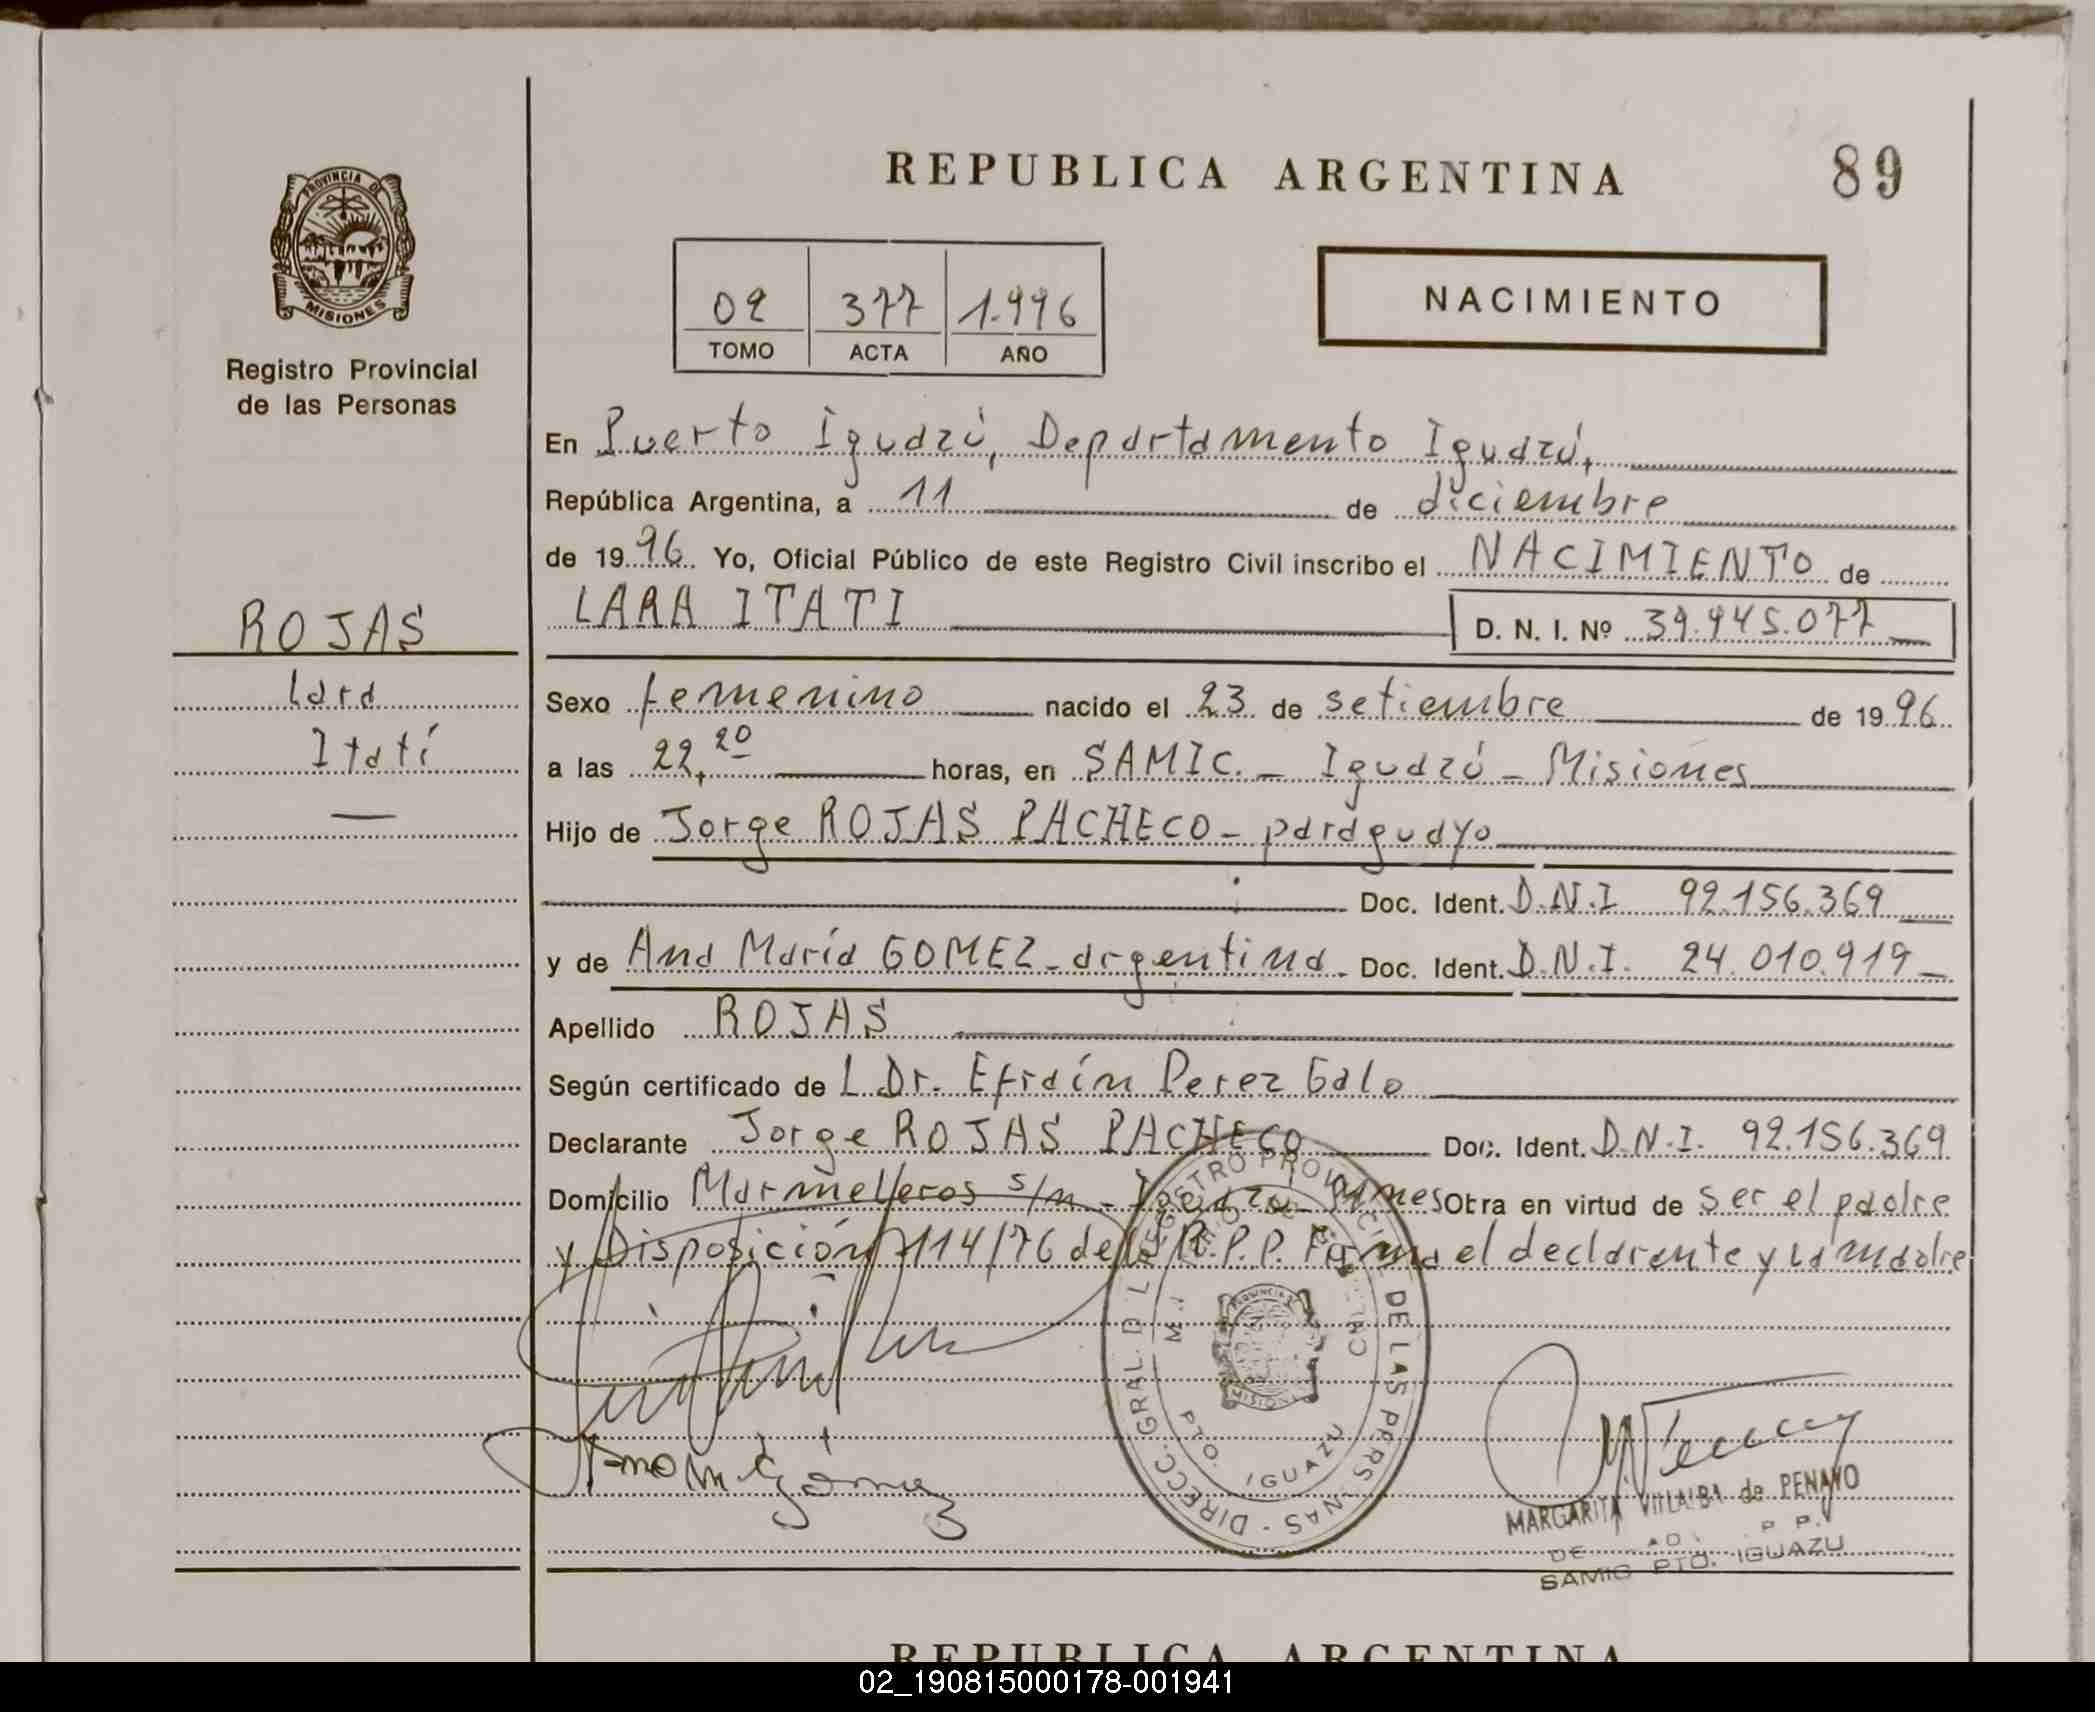 REPUBLICA ARGENTINA
89
PROVINCIA DE
MISIONES
Registro Provincial
de las Personas
02 377 1.996
TOMO ACTA AÑO
NACIMIENTO
En Puerto Iguazú, Departamento Iguazú,
República Argentina, a 11 de diciembre
de 1996. Yo, Oficial Público de este Registro Civil inscribo el NACIMIENTO de
LARA ITATI D. N. I. Nº 39.945.077
ROJAS
Lara
Itatí
Sexo femenino nacido el 23 de setiembre de 1996
a las 22,20 horas, en SAMIC. - Iguazú - Misiones
Hijo de Jorge ROJAS PACHECO - paraguayo
Doc. Ident. D.N.I 92.156.369
y de Ana María GOMEZ - argentina - Doc. Ident. D.N.I. 24.010.919
Apellido ROJAS
Según certificado de L Dr. Efraín Perez Galo
Declarante Jorge ROJAS PACHECO Doc. Ident. D.N.I. 92.156.369
Domicilio s/n - Obra en virtud de ser el padre
y Disposición 114/76 del R.P.P. Firma el declarante y la madre
DIRECC. GRAL. DEL REGISTRO PROVINCIAL DE LAS PERSONAS
PTO. IGUAZU
MISIONES
Gómez
MARGARITA VILLALBA de PENAYO
SAMIC PTO. IGUAZU
REPUBLICA ARGENTINA
02_190815000178-001941